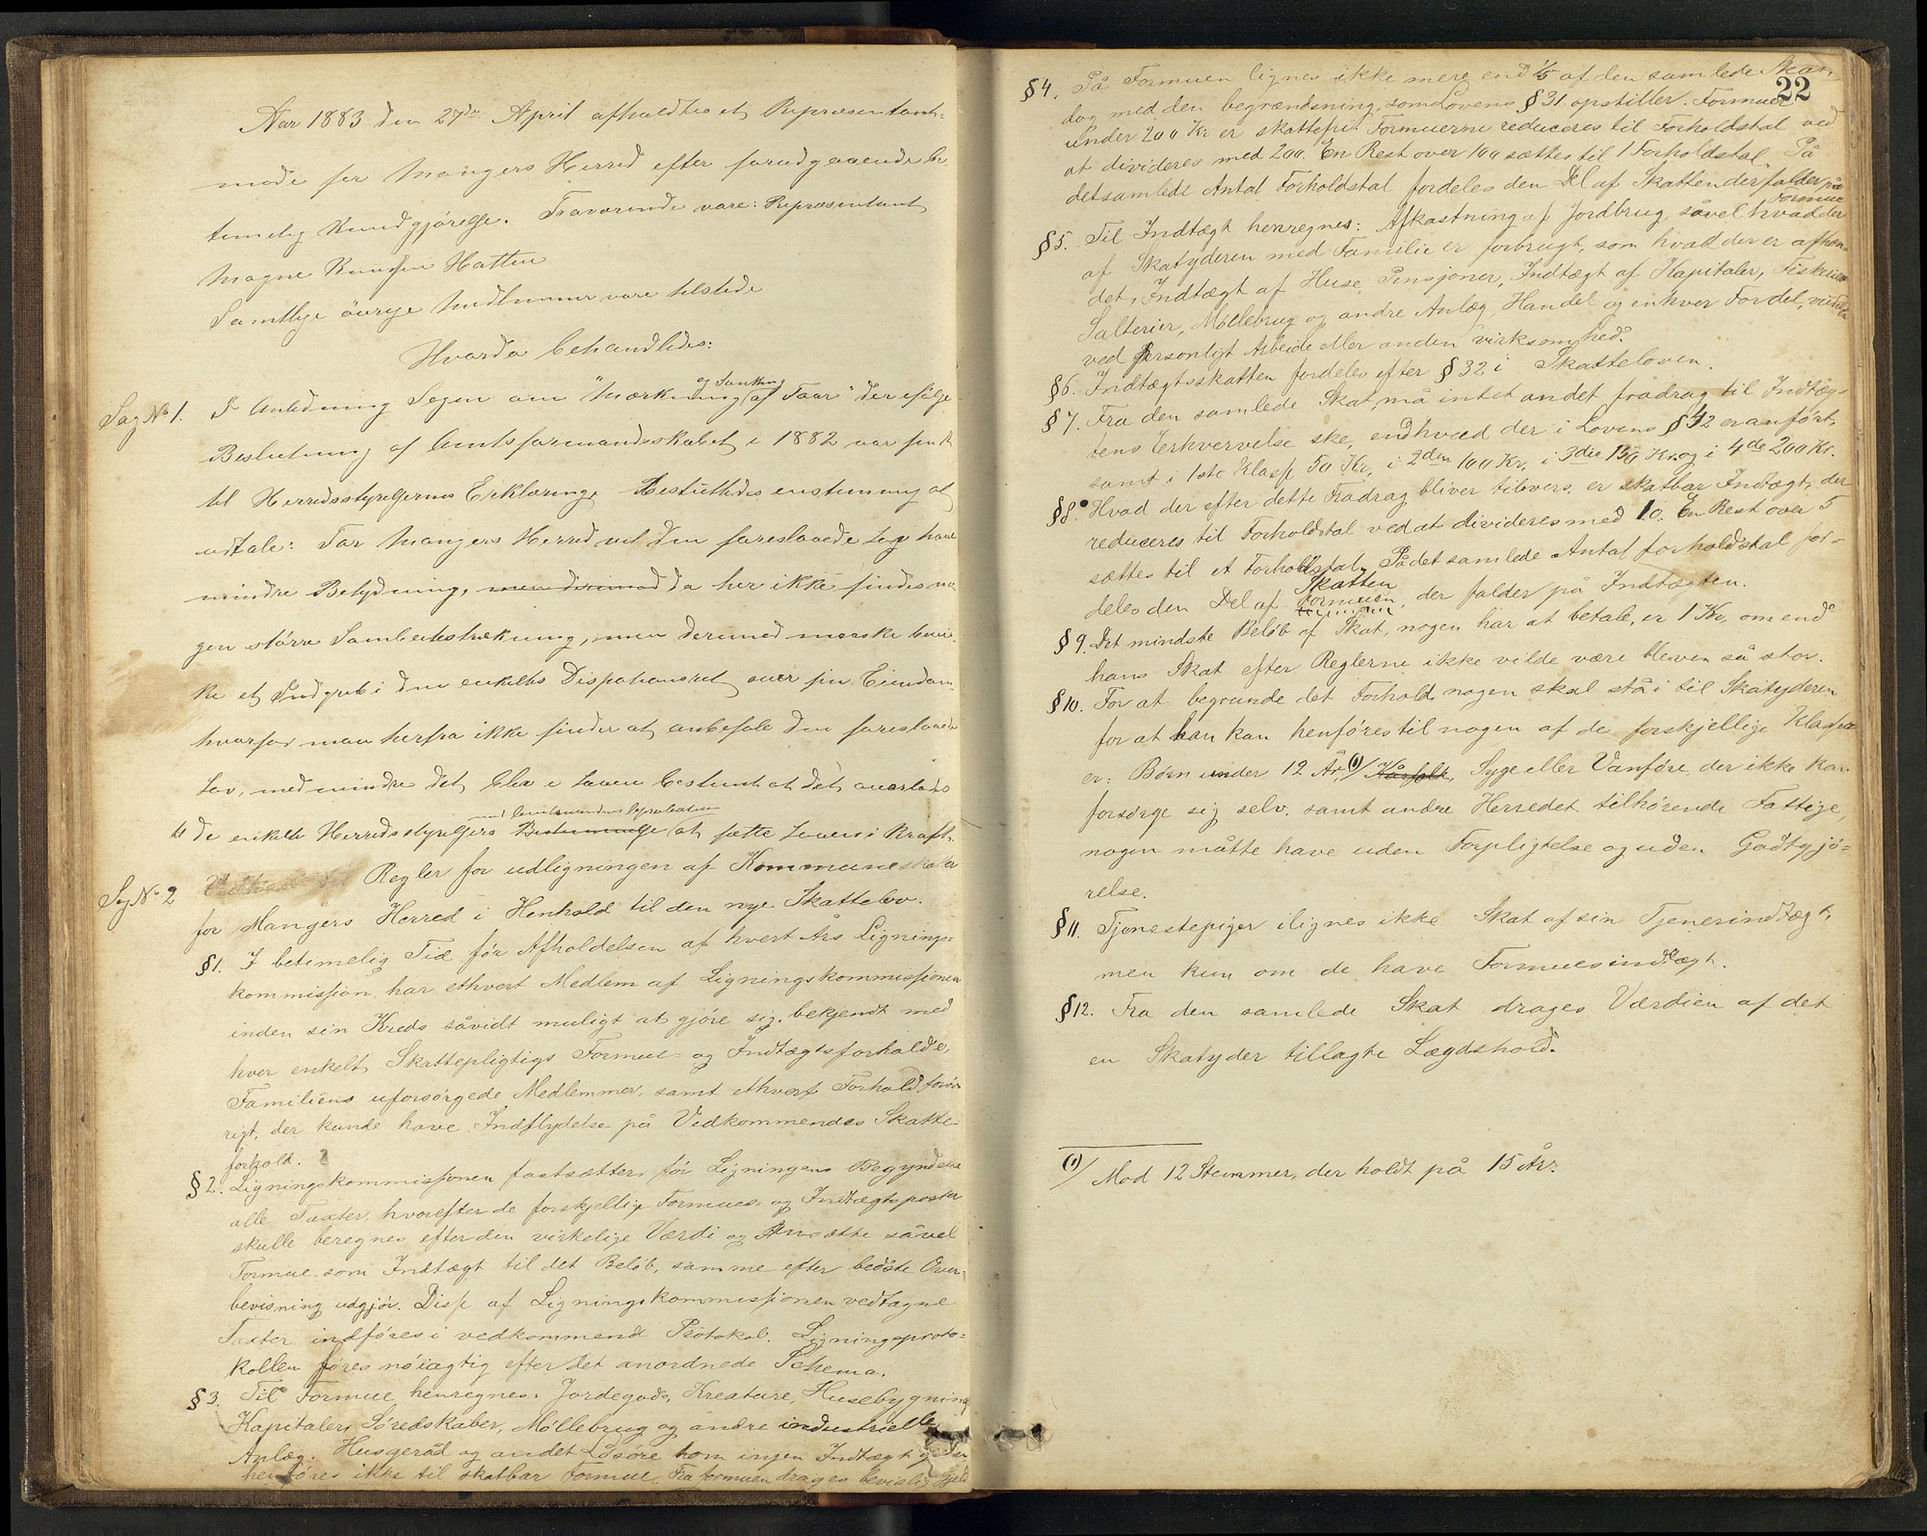 Aar 1883 den 27de April afholdtes et Repræsentant-
møde for Mangers Herred efter forudgaaende be-
timelig Kundgjørelse. Fraværende vare: Repræsentant
Magne Knudsen Hatten
Samtlige øvrige Medlemmer vare tilstede
Hvorda behandledes:
Sag No 1. I Anledning Sagen om "Mærkning og Sanking af Faar" der ifølge
Beslutning af Amtsformandsskabet i 1882 var sendt
til Herredsstyrelsernes Erklæring, besluttedes enstemmig at
udtale: For Mangers Herred vil den foreslaaede Lov have
mindre Betydning, men derimod da her ikke findes no-
gen større Sambeitestrækning, men derimod maaske kun-
ne et Indgreb i den enkeltes Dispotionsret over sin Eiendom
hvorfor man herfra ikke finder at anbefale den foreslaaede
Lov, medmindre det blev i Loven bestemt at det overlades
til de enkelte Herredsstyrelsers Bestemmelse med Amtmandens Approbation at sætte Loven i Kraft.
Sag No 2 Regler for udligningen af Kommuneskater
for Mangers Herred i Henhold til den nye Skattelov.
§1. I betimelig Tid før Afholdelsen af hvert Års Lignings-
kommission, har ethvert Medlem af Ligningskommissionen
inden sin Kreds såvidt muligt at gjøre sig bekjendt med
hver enkelt Skattepligtigs Formue- og Indtægtsforholde,
Familiens uforsørgede Medlemmer, samt ethvert Forhold forøv-
rigt, der kunde have Indflydelse på Vedkommendes Skatte-
forhold.
§2. Ligningskommissionen fastsætter før Ligningens Begyndelse
alle Taxter, hvorefter de forskjellige Formues- og Indtægtsposter
skulle beregnes efter den virkelige Værdi og Ansætte såvel
Formue som Indtægt til det Beløb, samme efter bedste Over-
bevisning udgjør. Disse af Ligningskommissionen vedtagne
Taxter indføres i vedkommende Protokol. Ligningsproto-
kollen føres nøiagtig efter det anordnede Schema.
§3. Til Formue henregnes: Jordegods, Kreature, Husebygning
Kapitaler, Søredskaber, Møllebrug og andre industrielle
Anlæg. Husgeråd og andet Løsøre som ingen Indtægt
henføres ikke til skatbar Formue. Fra formuen drages bevislig Gjeld
22
§4. På Formuen lignes ikke mere end 1/5 af den samlede Skat,
dog med den begrændsning, som Lovens §31 opstiller. Formuer
under 200 Kr er skattefri. Formuerne reduceres til Forholdstal ved
at divideres med 200. En Rest over 100 sættes til 1 Forholdstal. På
det samlede Antal Forholdstal fordeles den Del af Skatten der falder på
Formue
§5. Til Indtægt henregnes: Afkastning af Jordbrug såvel hvad der
af Skatyderen med Familie er forbrugt, som hvad der er afhæn-
det, Indtægt af Huse, Pensjoner, Indtægt af Kapitaler, Fiskerier
Salterier, Møllebrug og andre Anlæg, Handel og enhver Fordel, vundet
ved personligt Arbeide eller anden virksomhed.
§6. Indtægtsskatten fordeles efter §32 i Skatteloven.
§7. Fra den samlede Skat må intet andet fradrag til Indtæg-
tens Erhvervelse ske, end hvad der i Lovens §42 er anført,
samt i 1ste Klasse 50 Kr, i 2den 100 Kr, i 3die 150 Kr. og i 4de 200 Kr.
§8. Hvad der efter dette Fradrag bliver tilovers, er skatbar Indtægt, der
reduceres til Forholdstal ved at divideres med 10. En Rest over 5
sættes til et Forholdstal. På det samlede Antal forholdstal for-
deles den Del af Formuen Skatten, der falder på Indtægten.
§9. Det mindste Beløb af Skat, nogen har at betale, er 1 Kr, om end
hans Skat efter Reglerne ikke vilde være bleven så stor.
§10. For at begrunde det Forhold nogen skal stå i til Skatyderen
for at han kan henføres til nogen af de forskjellige Klasser
er: Børn under 12 År, (1)/ Kårfolk, Syge eller Vanføre, der ikke kan
forsørge sig selv, samt andre Herredet tilhørende Fattige,
nogen måtte have uden Forpligtelse og uden Godtgjø-
relse.
§11. Tjenestepiger ilignes ikke Skat af sin Tjenerindtægt,
men kun om de have Formuesindtægt.
§12. Fra den samlede Skat drages Værdien af det
en Skatyder tillagte Lægdshold.
(1)/ Mod 12 Stemmer, der holdt på 15 År.